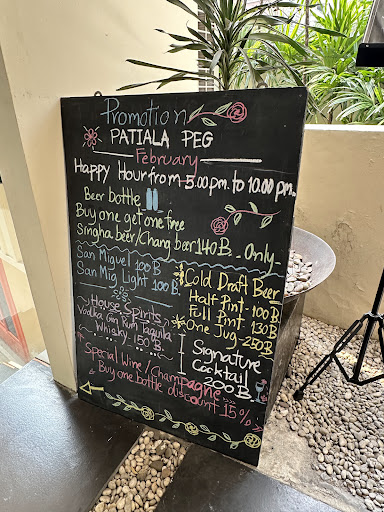 Promotion
PATIALA PEG
February
Happy Hour from 5.00 pm. to 10.00 pm.
Beer bottle
Buy one get one free
Singha beer/Chang beer 140 B. Only
San Miguel 100 B
San Mig Light 100 B.
House Spirits
Vodka Gin Rum Taquila
Whisky 150 B.
Cold Draft Beer
Half Pint - 100 B
Full Pint 130 B
One Jug - 250 B
Signature
Cocktail
200 B.
Special Wine / Champagne
Buy one bottle discount 15 %